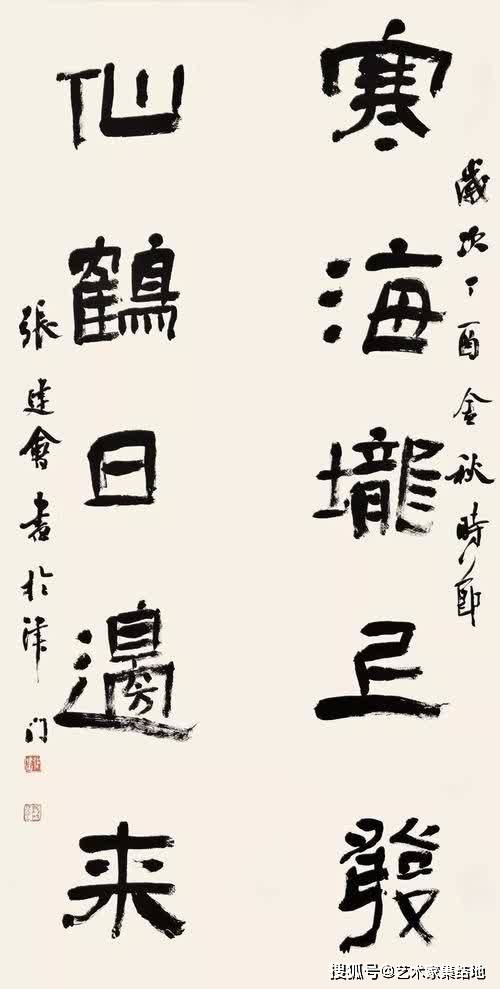 歲次丁酉金秋時節
寒海壠上發
仙鶴日邊来
張建會書於津门
搜狐号@艺术家集结地